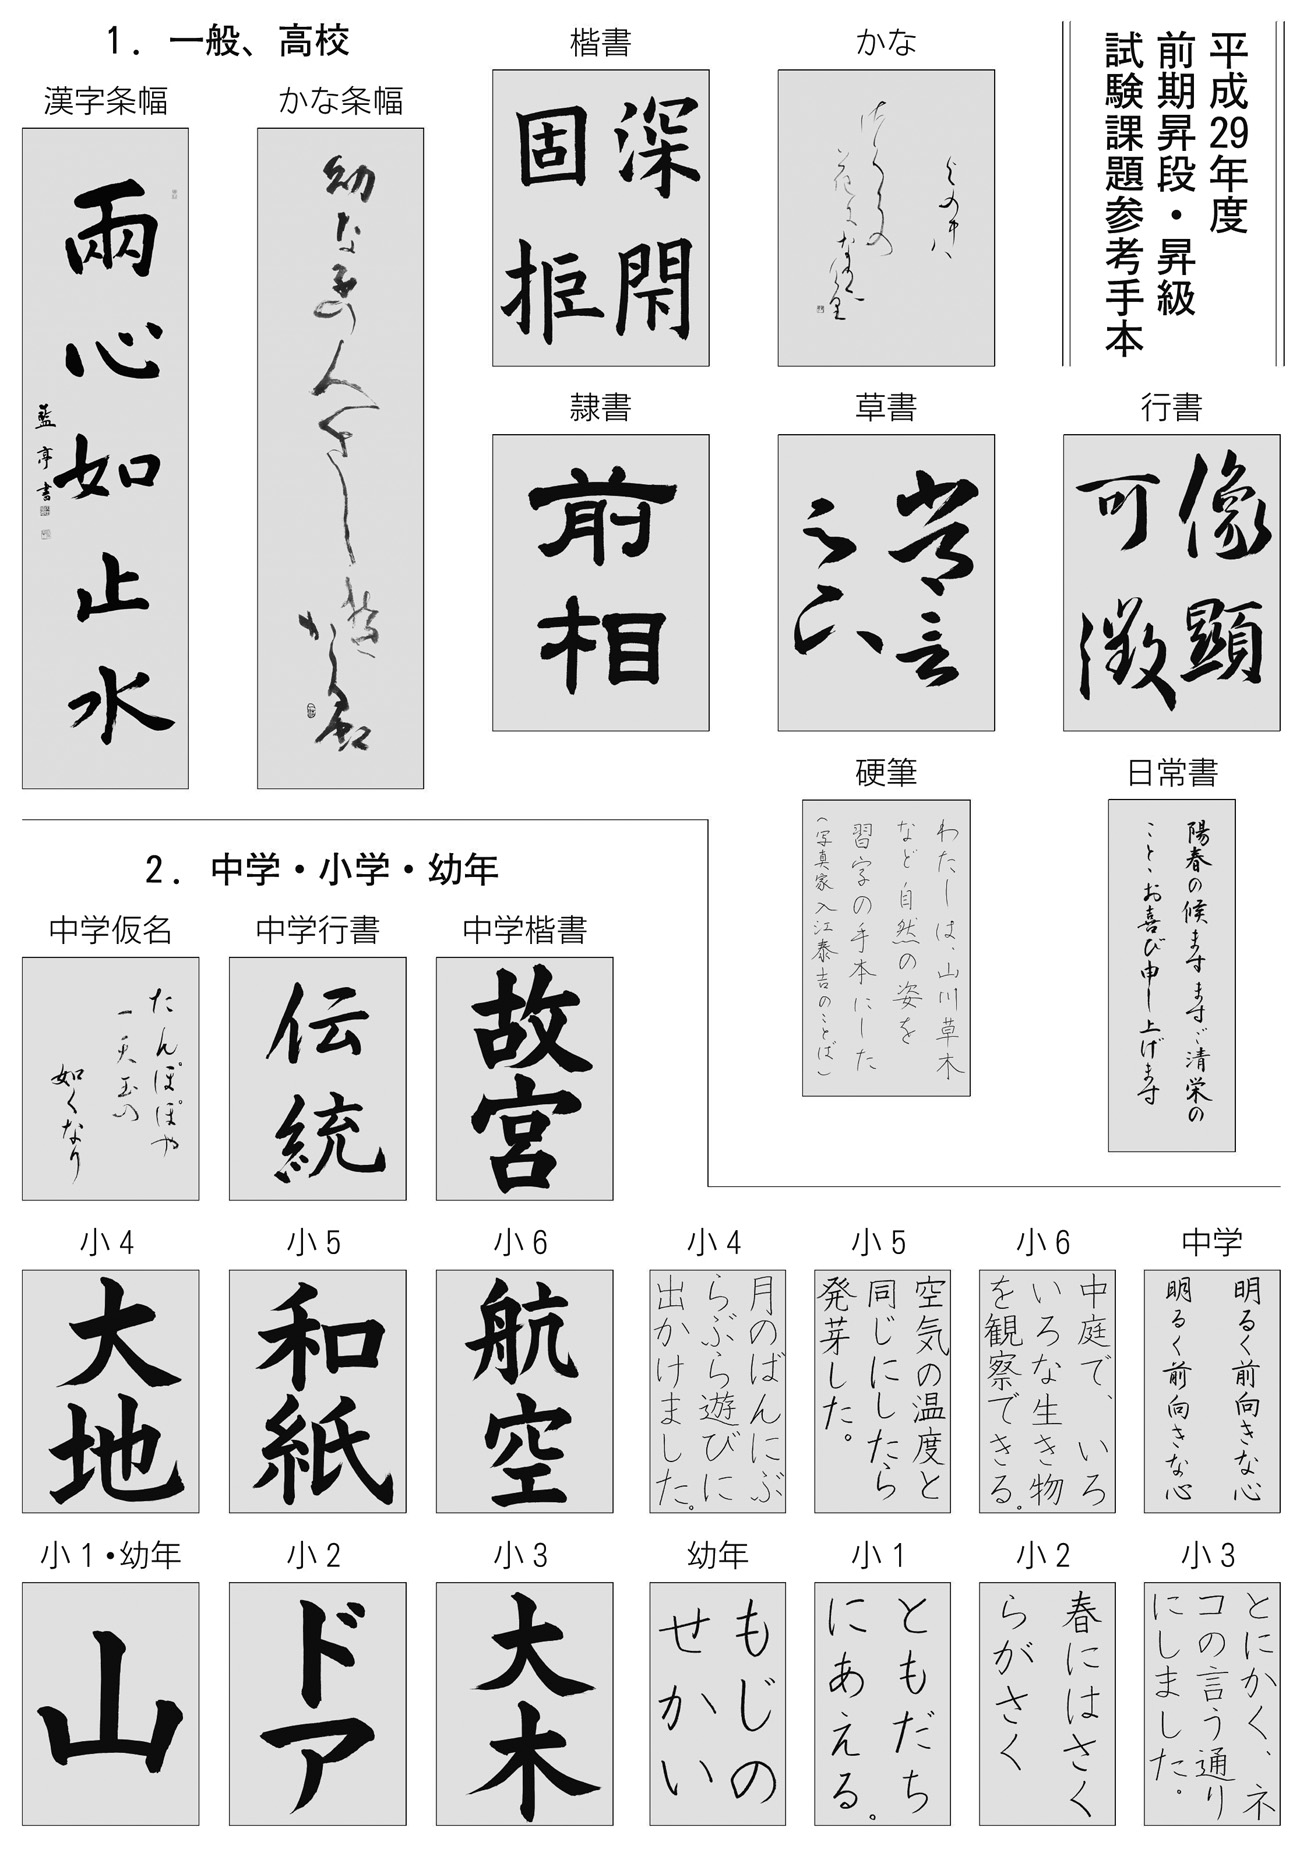 平成29年度
前期昇段・昇級
試験課題参考手本
1. 一般、高校
かな
よの中ハ
さくらの
楷書
深閇
固拒
かな条幅
幼な子の人さし指
漢字条幅
兩心如止水
藍亭書
行書
像顕
可徴
草書
隷書
前相
日常書
陽春の候ますますご清栄の
こととお喜び申し上げます
硬筆
わたしは、山川草木
など自然の姿を
習字の手本にした
(写真家入江泰吉のことば)
2. 中学・小学・幼年
中学楷書
故宮
中学行書
伝統
中学仮名
たんぽぽや
一天玉の
如くなり
中学
明るく前向きな心
明るく前向きな心
小6
中庭で、いろ
いろな生き物
を観察できる。
小5
空気の温度と
同じにしたら
発芽した。
小4
月のばんにぶ
らぶら遊びに
出かけました。
小6
航空
小5
和紙
小4
大地
小3
とにかく、ネ
コの言う通り
にしました。
小2
春にはさく
らがさく
小1
ともだち
にあえる。
幼年
もじの
せかい
小3
大木
小2
ドア
小1・幼年
山